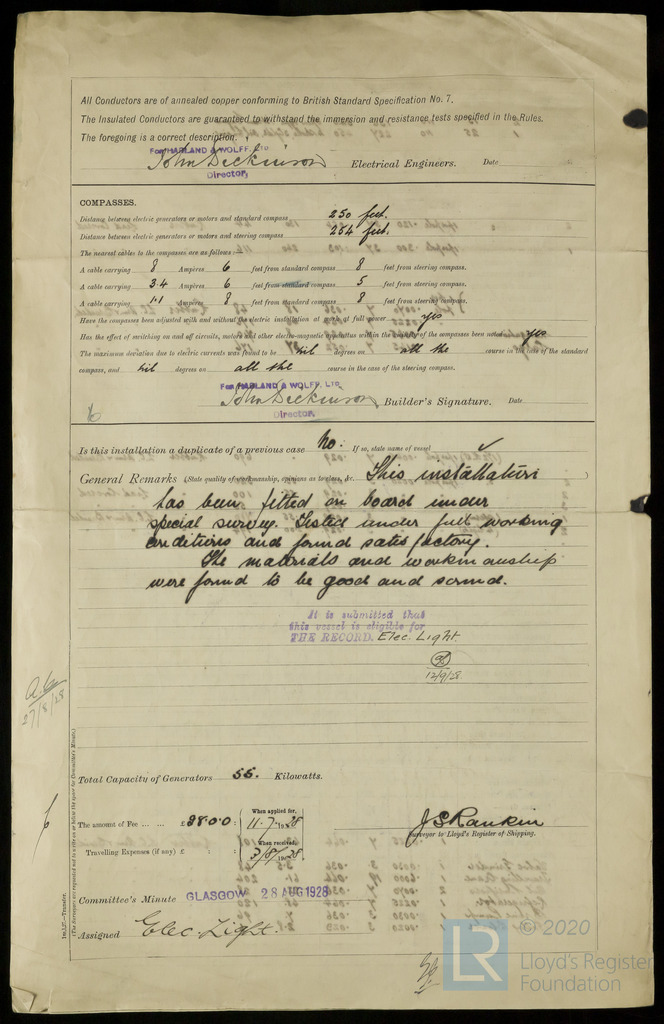 All Conductors are of annealed copper conforming to British Standard Specification No. 7.
The Insulated Conductors are guaranteed to withstand the immersion and resistance tests specified in the Rules.
The foregoing is a correct description.
For HARLAND & WOLFF, LTD
John Dickinson Electrical Engineers. Date
Director,
COMPASSES.
Distance between electric generators or motors and standard compass 250 feet.
Distance between electric generators or motors and steering compass 254 feet.
The nearest cables to the compasses are as follows:—
A cable carrying 8 Ampères 6 feet from standard compass 8 feet from steering compass.
A cable carrying 3.4 Ampères 6 feet from standard compass 5 feet from steering compass.
A cable carrying 1.1 Ampères 8 feet from standard compass 8 feet from steering compass.
Have the compasses been adjusted with and without the electric installation at work at full power yes
Has the effect of switching on and off circuits, motors and other electro-magnetic apparatus within the vicinity of the compasses been noted yes
The maximum deviation due to electric currents was found to be nil degrees on all the course in the case of the standard
compass, and nil degrees on all the course in the case of the steering compass.
For HARLAND & WOLFF, LTD.
John Dickinson Builder's Signature. Date
Director.
Is this installation a duplicate of a previous case No. If so, state name of vessel
General Remarks (State quality of workmanship, opinions as to class, &c. This installation
has been fitted on board under
special survey. Tested under full working
conditions and found satisfactory.
The materials and workmanship
were found to be good and sound.
It is submitted that
this vessel is eligible for
THE RECORD. Elec. Light.
12/9/28
27/8/28
Total Capacity of Generators 55. Kilowatts.
The amount of Fee ... ... £38.0.0 : When applied for, 11.7.1928
Travelling Expenses (if any) £ : : When received, 3/8/1928
J S Rankin
Surveyor to Lloyd's Register of Shipping.
Committee's Minute GLASGOW 28 AUG 1928
Assigned Elec. Light.
LR © 2020
Lloyd's Register
Foundation